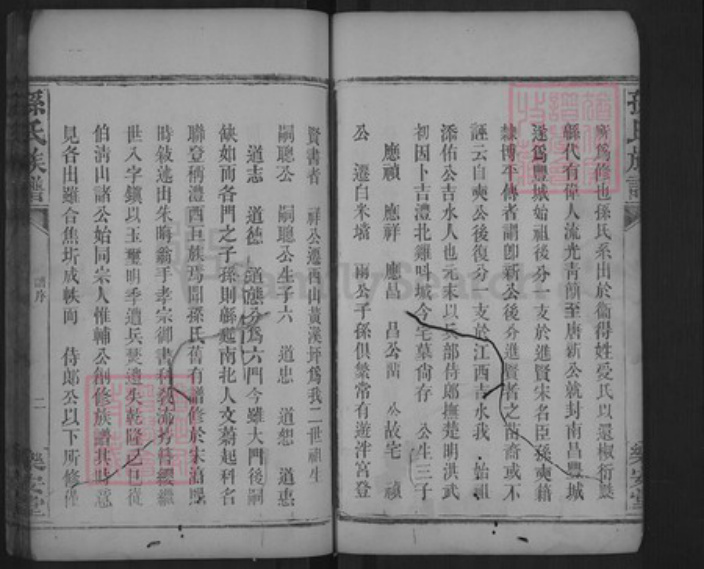 孫氏族譜
廣爲修也孫氏系出於衞得姓受氏以還椒衍瓞
緜代有偉人流光青簡至唐新公就封南昌豐城
遂爲豐城始祖後分一支於進賢宋名臣孫奭籍
隸博平傳者謂卽新公後分進賢者之苗裔或不
誣云自奭公後復分一支於江西吉水我 始祖
添佑公吉水人也元末以兵部侍郎撫楚明洪武
初因卜吉澧北雞叫城今宅墓尙存 公生三子
應禎 應祥 應昌 昌公留 公故宅 禎
公 遷白米壋 兩公子孫俱繁常有遊泮宮登
樂安堂
賢書者 祥公遷西山黃溪坪爲我二世祖生
嗣聰公 嗣聰公生子六 道忠 道想 道惠
道志 道德 道態分爲六門今雖大門後嗣
缺如而各門之子孫則緜延南北人文蔚起科名
聯登稱澧西巨族焉聞孫氏舊有譜修於宋淯熙
時敍述出朱晦翁手孝宗御書科
世八字鎭以玉璽明季遭兵燹遺失乾隆己巳從
伯清山諸公始同宗人惟輔公創修族譜其時意
見各出雖合焦圻成帙而 侍郎公以下所修
孫氏族譜
譜序
二
樂安堂
FamilySearch